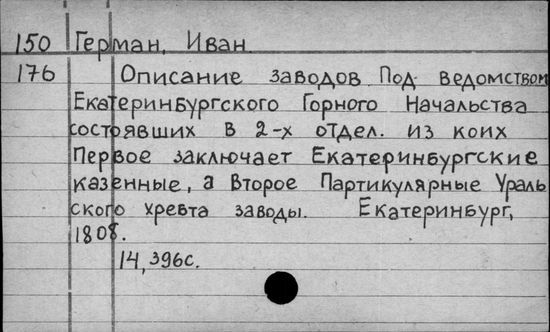 150 Герман, Иван
176 Описание заводов Под ведомством
Екатеринбургского Горного Начальства
состоявших в 2-х отдел. из коих
Первое заключает Екатеринбургские
казенные, а Второе Партикулярные Ураль
ского хребта заводы. Екатеринбург,
1808.
14, 396с.